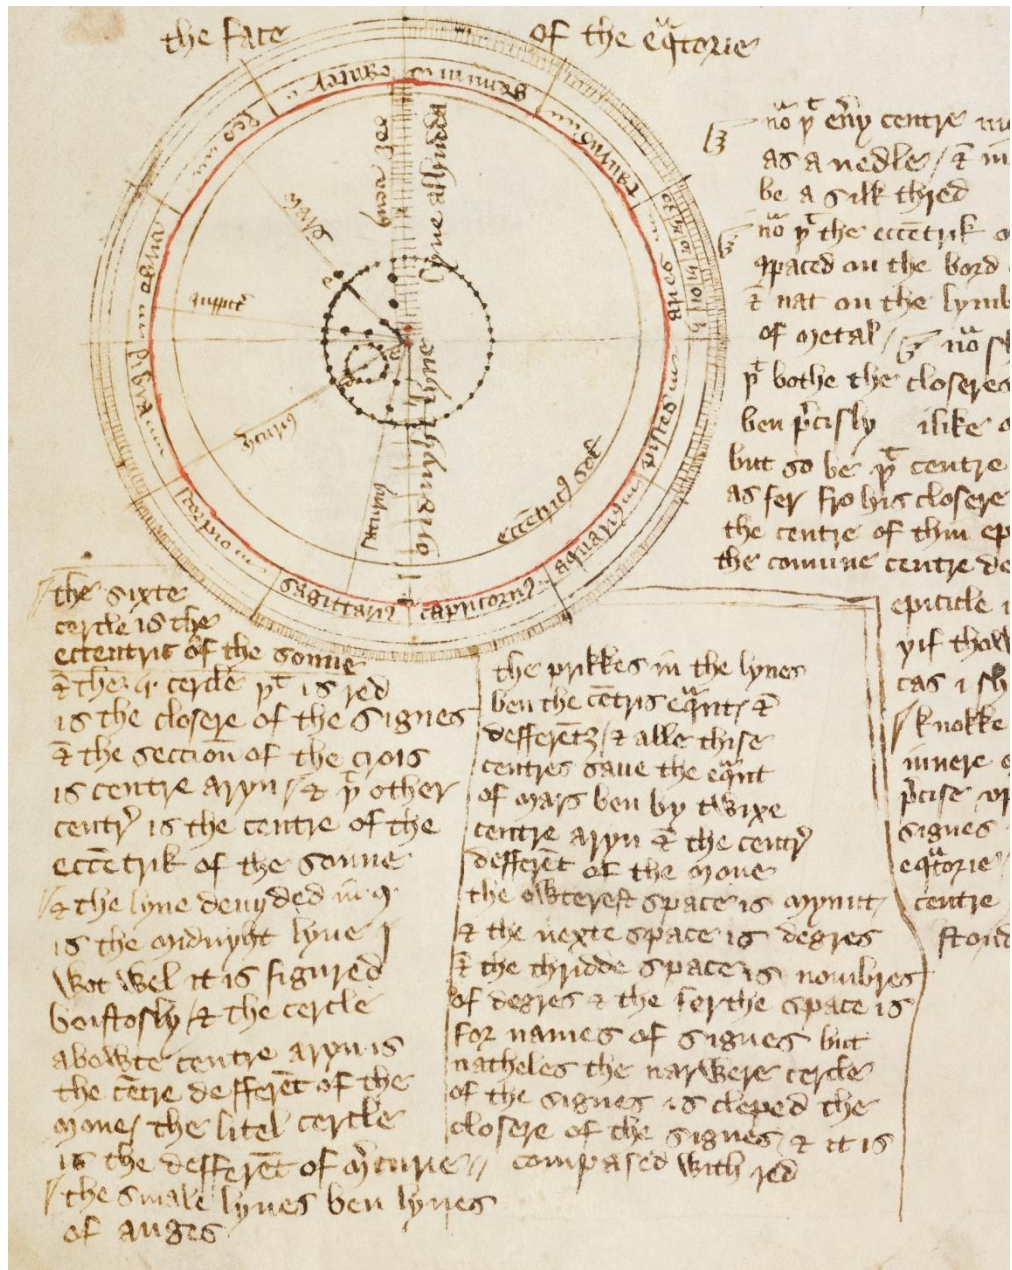 the face of the eq̃torie
geminis
taurus
leo
virgo
libra
scorpio
sagittarius
capricornus
aquarius
pisces
lyne alhudda
lyne midnyht
mars
saturnus
eccẽtricus sol
nõ þͭ eũy centre
as a nedle / & in
be a silk thred
nõ þͭ the eccẽtrik
on the bord
& nat on the lymb
of metal / nõ
þͭ bothe the closeres
ben p̃cisly ilike
but so be þͭ centre
as fer fro his closere
the centre of thin ep
the comune centre de
epicicle
yif thow
cas i sh
knokke
innere
p̃cise
signes
eq̃torie
centre
stond
the sixte
cercle is the
eccentric of the sonne
& the cercle þͭ is red
is the closere of the signes
& the section of the crois
is centre aryn / & þͭ other
centr̃ is the centre of the
eccẽtrik of the sonne
& the lyne deuyded in 9
is the midnyht lyne
wot wel it is figured
boistosly / & the cercle
abowte centre aryn is
the cẽtre defferẽt of the
mone / the litel cercle
is the defferẽt of m̃curie //
the smale lynes ben lynes
of auges
the prikkes in the lynes
ben the cẽtris eq̃nt / &
defferẽtz / & alle thise
centres saue the eq̃nt
of mars ben by twixe
centre aryn & the centr̃
defferẽt of the mone
the owterest space is mynut /
& the nexte space is degres
& the thridde space is nombres
of degres & the ferthe space is
for names of signes but
natheles the narwere cercle
of the signes is cleped the
closere of the signes & it is
compased with red